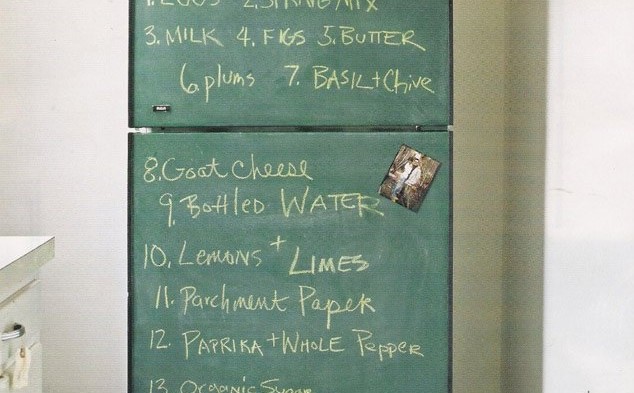 1. EGGS 2. SPRING MIX
3. MILK 4. FIGS 5. BUTTER
6. plums 7. BASIL + Chive
8. Goat cheese
9. Bottled WATER
10. Lemons + LIMES
11. Parchment Paper
12. PAPRIKA + WHOLE Pepper
13. Organic Sugar